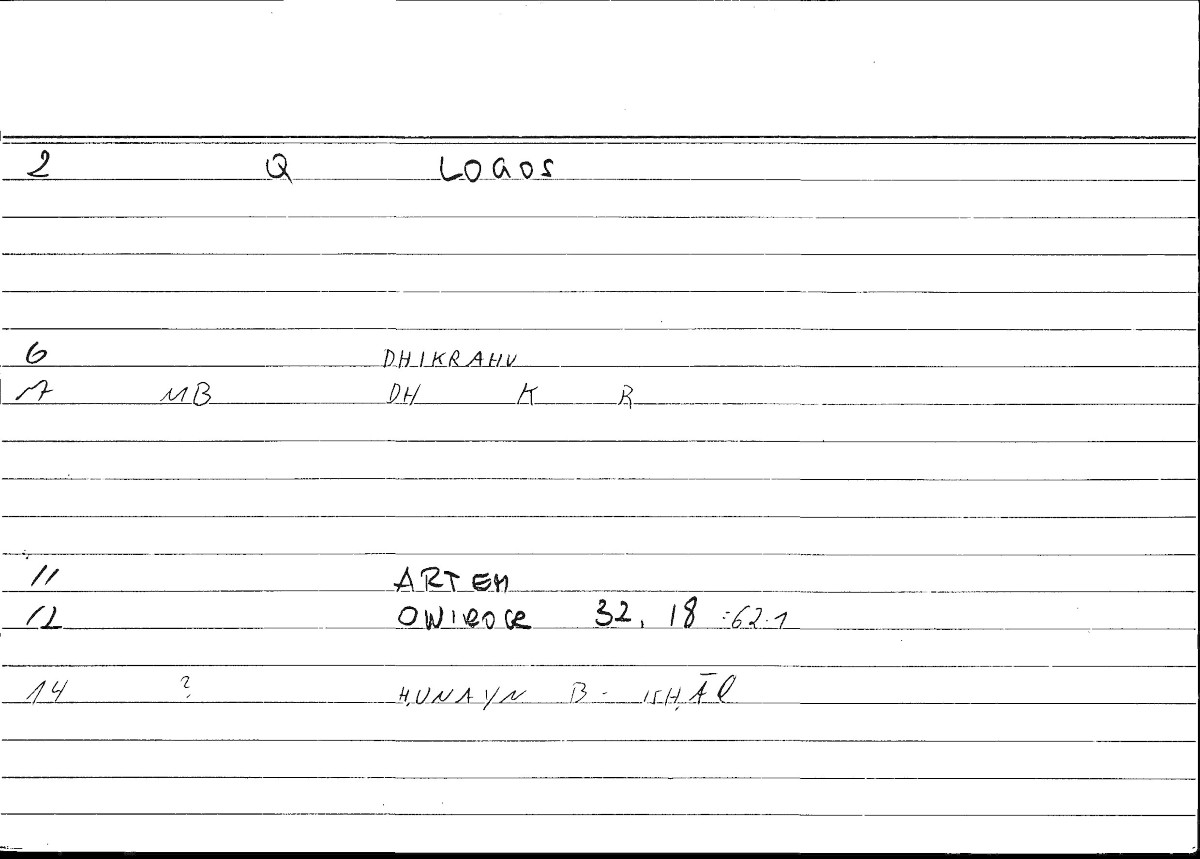 2 Q LOGOS
6 DHIKRAHU
7 MB DH K R
11 ARTEM
12 32, 18 :62.1
14 ? ḤUNAYN B. ISḤĀQ